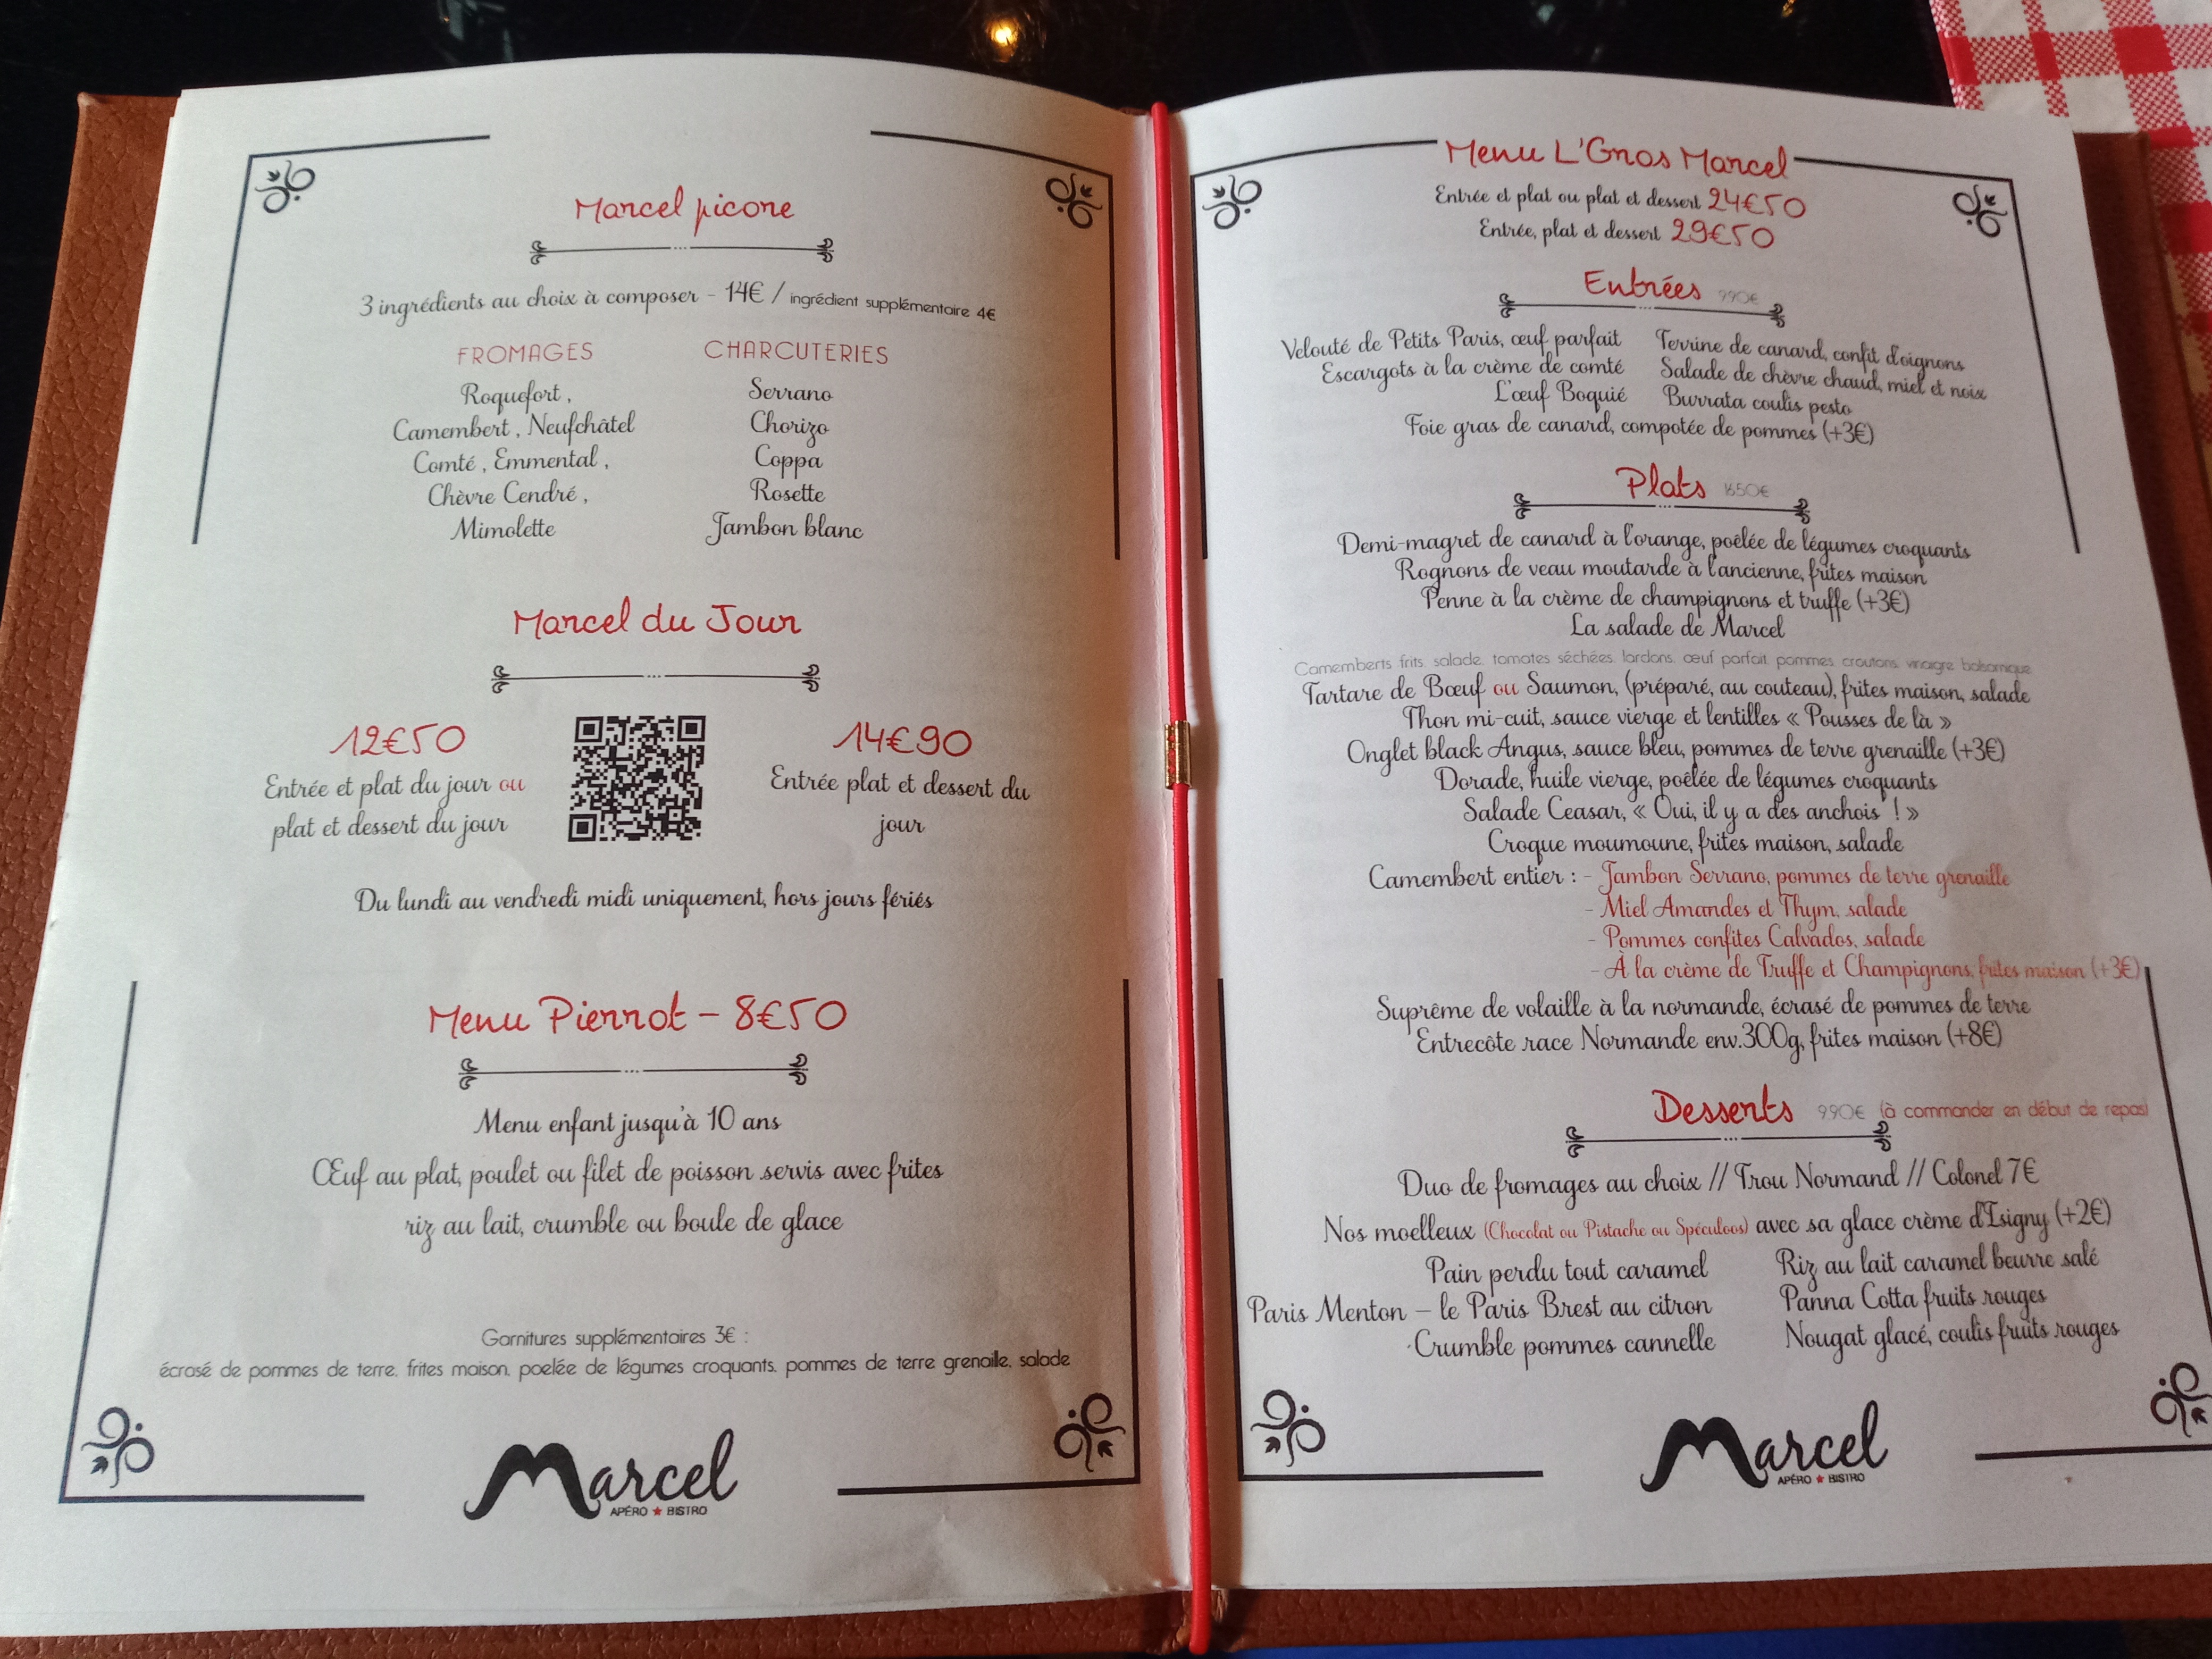 Marcel picore
3 ingrédients au choix à composer - 14€ / ingrédient supplémentaire 4€
FROMAGES
Roquefort ,
Camembert , Neufchâtel
Comté , Emmental ,
Chèvre Cendré ,
Mimolette
CHARCUTERIES
Serrano
Chorizo
Coppa
Rosette
Jambon blanc
Marcel du Jour
12€50
Entrée et plat du jour ou
plat et dessert du jour
14€90
Entrée plat et dessert du
jour
Du lundi au vendredi midi uniquement, hors jours fériés
Menu Pierrot - 8€50
Menu enfant jusqu'à 10 ans
Œuf au plat, poulet ou filet de poisson servis avec frites
riz au lait, crumble ou boule de glace
Garnitures supplémentaires 3€ :
écrasé de pommes de terre, frites maison, poelée de légumes croquants, pommes de terre grenaille, salade
Marcel
APÉRO ★ BISTRO
Menu L'Gros Marcel
Entrée et plat ou plat et dessert 24€50
Entrée, plat et dessert 29€50
Entrées 9.90€
Velouté de Petits Paris, œuf parfait
Escargots à la crème de comté
L'œuf Boquié
Terrine de canard, confit d'oignons
Salade de chèvre chaud, miel et noix
Burrata coulis pesto
Foie gras de canard, compotée de pommes (+3€)
Plats 16.50€
Demi-magret de canard à l'orange, poêlée de légumes croquants
Rognons de veau moutarde à l'ancienne, frites maison
Penne à la crème de champignons et truffe (+3€)
La salade de Marcel
Camemberts frits, salade, tomates séchées, lardons, œuf parfait, pommes, croutons, vinaigre balsamique
Tartare de Bœuf ou Saumon, (préparé, au couteau), frites maison, salade
Thon mi-cuit, sauce vierge et lentilles « Pousses de là »
Onglet black Angus, sauce bleu, pommes de terre grenaille (+3€)
Dorade, huile vierge, poêlée de légumes croquants
Salade Ceasar, « Oui, il y a des anchois ! »
Croque moumoune, frites maison, salade
Camembert entier : - Jambon Serrano, pommes de terre grenaille
- Miel Amandes et Thym, salade
- Pommes confites Calvados, salade
- À la crème de Truffe et Champignons, frites maison (+3€)
Suprême de volaille à la normande, écrasé de pommes de terre
Entrecôte race Normande env.300g, frites maison (+8€)
Desserts 9.90€ (à commander en début de repas)
Duo de fromages au choix // Trou Normand // Colonel 7€
Nos moelleux (Chocolat ou Pistache ou Spéculoos) avec sa glace crème d'Isigny (+2€)
Pain perdu tout caramel
Paris Menton – le Paris Brest au citron
Crumble pommes cannelle
Riz au lait caramel beurre salé
Panna Cotta fruits rouges
Nougat glacé, coulis fruits rouges
Marcel
APÉRO ★ BISTRO